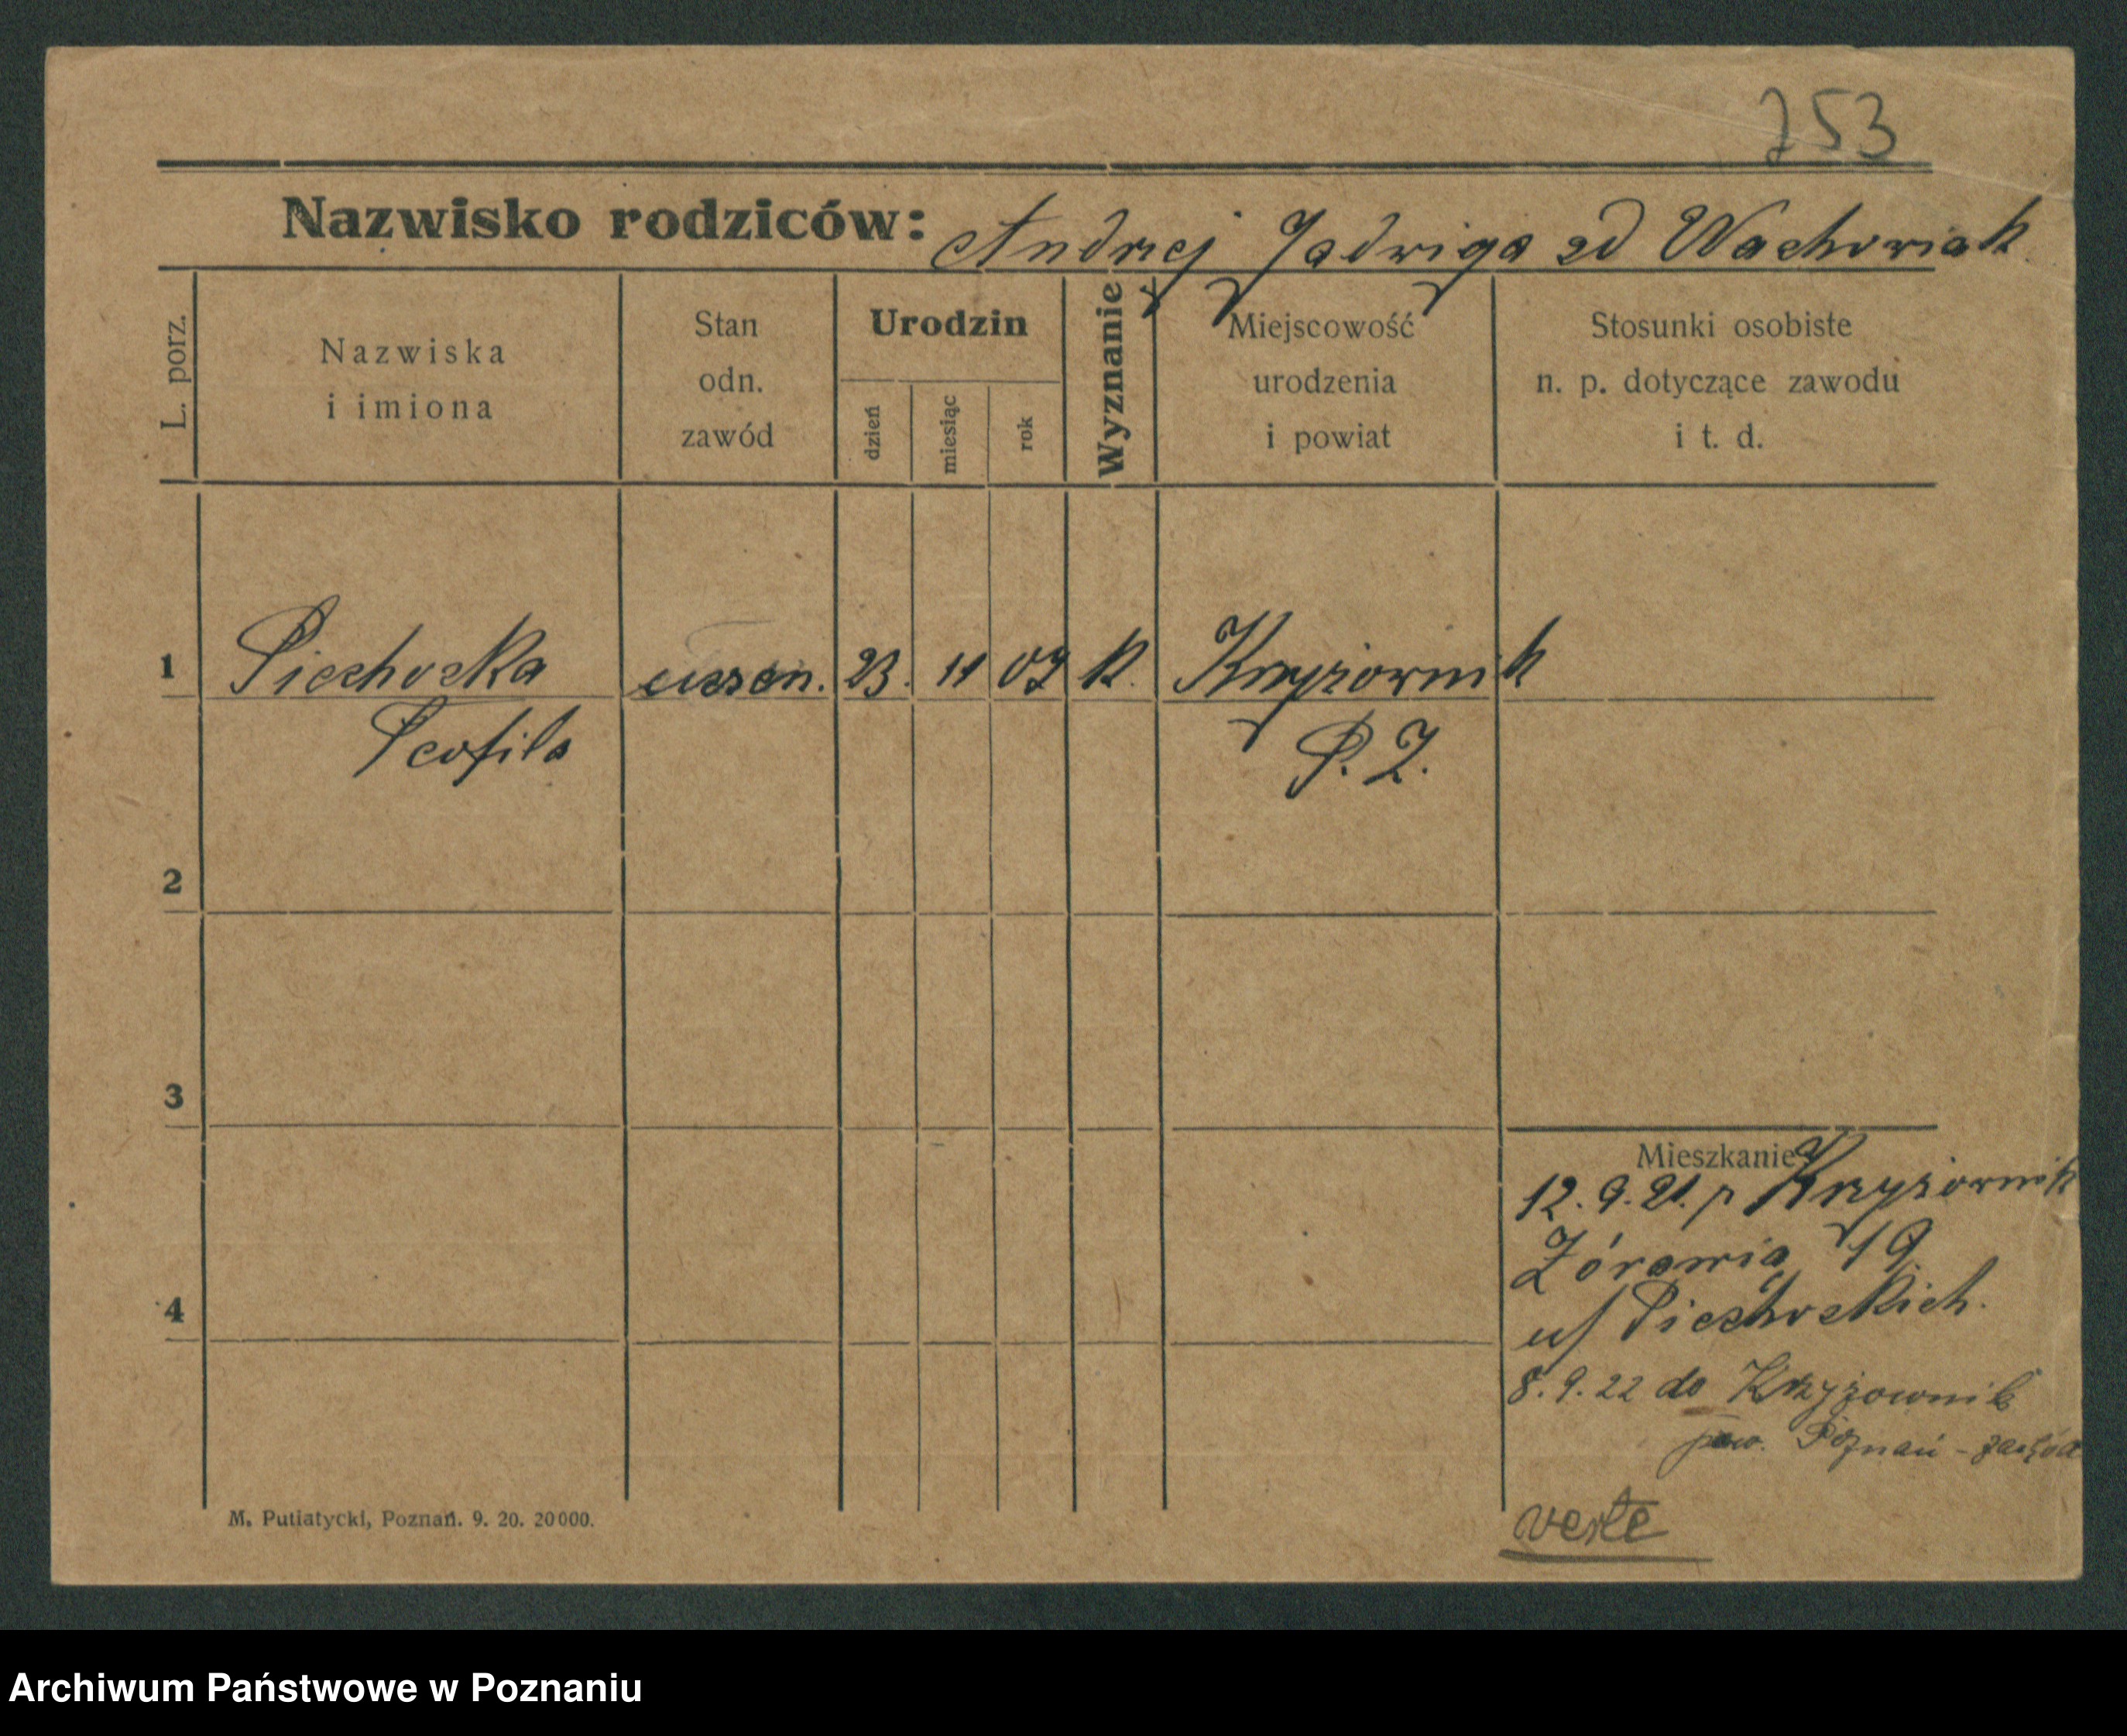 753
Nazwisko rodziców: Andrzej Jadwiga zd Wachowiak
L. porz.
Nazwiska
i imiona
Stan
odn.
zawód
Urodzin
dzień
miesiąc
rok
Wyznanie
Miejscowość
urodzenia
i powiat
Stosunki osobiste
n. p. dotyczące zawodu
i t. d.
1 Piechocka uczen. 23. 11 07 k. Krzyżownik
Teofila P. Z.
2
3
Mieszkanie
12. 9. 21. p Krzyżownik
Żórawia 19
u/ Piechockich.
4
8. 9. 22 do Krzyżownik
pow. Poznań - zachód
verte
M. Putiatycki, Poznań. 9. 20. 20000.
Archiwum Państwowe w Poznaniu